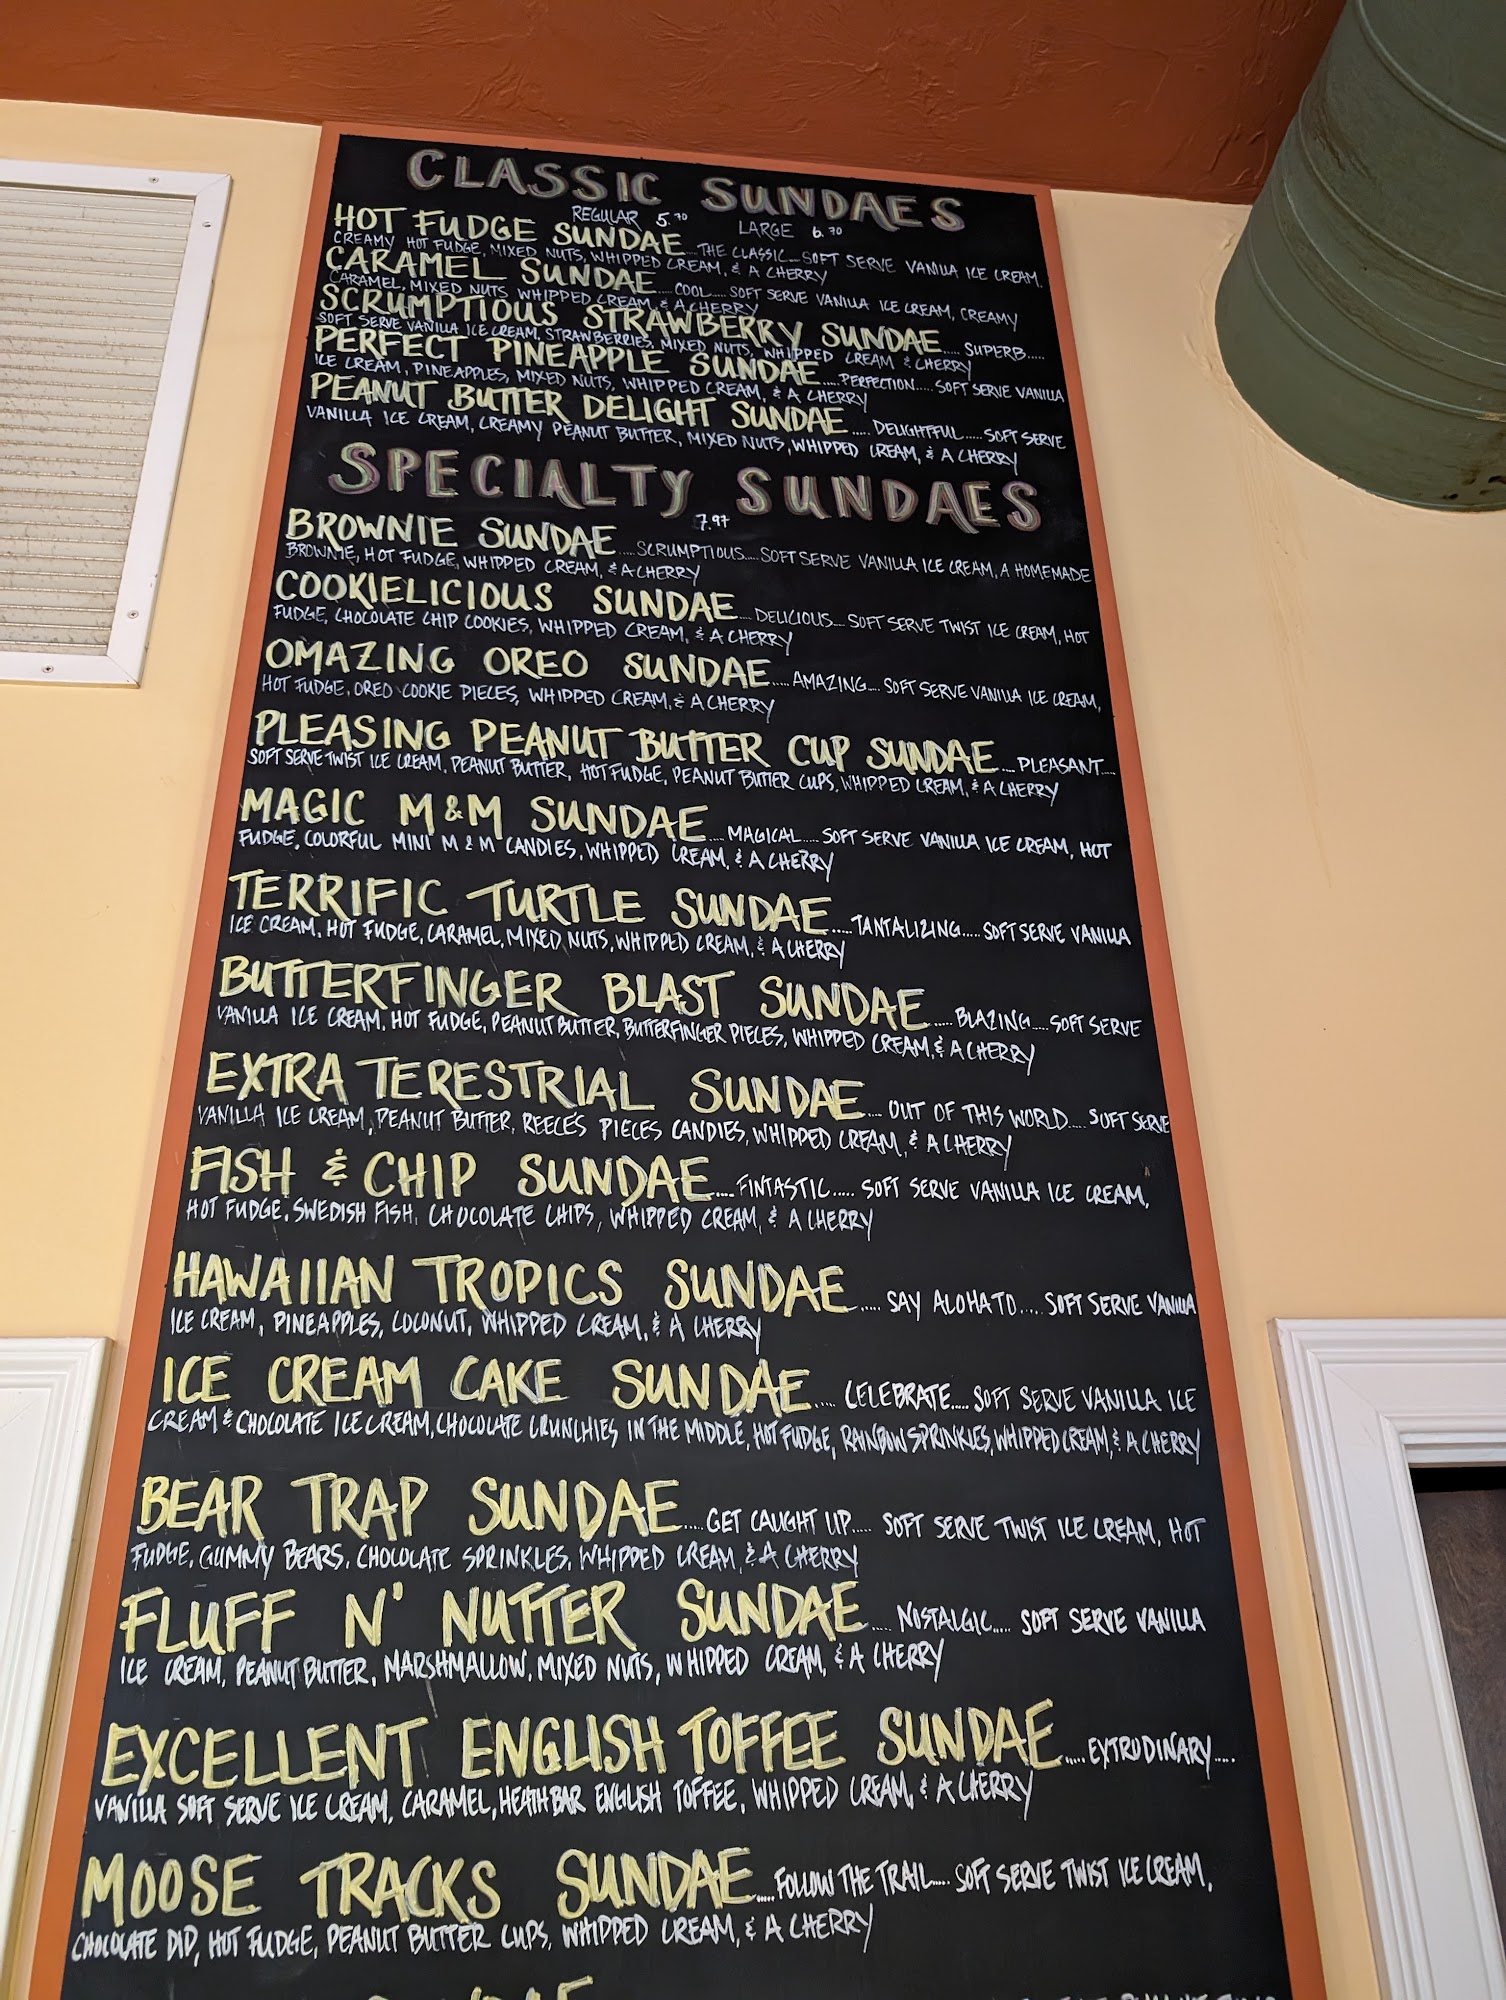 CLASSIC SUNDAES
REGULAR 5.70 LARGE 6.70
HOT FUDGE SUNDAE....THE CLASSIC...SOFT SERVE VANILLA ICE CREAM,
CREAMY HOT FUDGE, MIXED NUTS, WHIPPED CREAM, & A CHERRY
CARAMEL SUNDAE....COOL....SOFT SERVE VANILLA ICE CREAM, CREAMY
CARAMEL, MIXED NUTS, WHIPPED CREAM, & A CHERRY
SCRUMPTIOUS STRAWBERRY SUNDAE....SUPERB.....
SOFT SERVE VANILLA ICE CREAM, STRAWBERRIES, MIXED NUTS, WHIPPED CREAM & CHERRY
PERFECT PINEAPPLE SUNDAE.....PERFECTION.....SOFT SERVE VANILLA
ICE CREAM, PINEAPPLES, MIXED NUTS, WHIPPED CREAM, & A CHERRY
PEANUT BUTTER DELIGHT SUNDAE.....DELIGHTFUL.....SOFT SERVE
VANILLA ICE CREAM, CREAMY PEANUT BUTTER, MIXED NUTS, WHIPPED CREAM, & A CHERRY
SPECIALTY SUNDAES
7.97
BROWNIE SUNDAE.....SCRUMPTIOUS....SOFT SERVE VANILLA ICE CREAM, A HOMEMADE
BROWNIE, HOT FUDGE, WHIPPED CREAM, & A CHERRY
COOKIELICIOUS SUNDAE....DELICIOUS....SOFT SERVE TWIST ICE CREAM, HOT
FUDGE, CHOCOLATE CHIP COOKIES, WHIPPED CREAM, & A CHERRY
OMAZING OREO SUNDAE....AMAZING....SOFT SERVE VANILLA ICE CREAM,
HOT FUDGE, OREO COOKIE PIECES, WHIPPED CREAM, & A CHERRY
PLEASING PEANUT BUTTER CUP SUNDAE....PLEASANT....
SOFT SERVE TWIST ICE CREAM, PEANUT BUTTER, HOT FUDGE, PEANUT BUTTER CUPS, WHIPPED CREAM, & A CHERRY
MAGIC M&M SUNDAE....MAGICAL.....SOFT SERVE VANILLA ICE CREAM, HOT
FUDGE, COLORFUL MINI M & M CANDIES, WHIPPED CREAM, & A CHERRY
TERRIFIC TURTLE SUNDAE.....TANTALIZING.....SOFT SERVE VANILLA
ICE CREAM, HOT FUDGE, CARAMEL, MIXED NUTS, WHIPPED CREAM, & A CHERRY
BUTTERFINGER BLAST SUNDAE.....BLAZING....SOFT SERVE
VANILLA ICE CREAM, HOT FUDGE, PEANUT BUTTER, BUTTERFINGER PIECES, WHIPPED CREAM, & A CHERRY
EXTRA TERESTRIAL SUNDAE....OUT OF THIS WORLD....SOFT SERVE
VANILLA ICE CREAM, PEANUT BUTTER, REECE'S PIECES CANDIES, WHIPPED CREAM, & A CHERRY
FISH & CHIP SUNDAE....FINTASTIC.....SOFT SERVE VANILLA ICE CREAM,
HOT FUDGE, SWEDISH FISH, CHOCOLATE CHIPS, WHIPPED CREAM, & A CHERRY
HAWAIIAN TROPICS SUNDAE.....SAY ALOHA TO....SOFT SERVE VANILLA
ICE CREAM, PINEAPPLES, COCONUT, WHIPPED CREAM, & A CHERRY
ICE CREAM CAKE SUNDAE....CELEBRATE....SOFT SERVE VANILLA ICE
CREAM & CHOCOLATE ICE CREAM, CHOCOLATE CRUNCHIES IN THE MIDDLE, HOT FUDGE, RAINBOW SPRINKLES, WHIPPED CREAM, & A CHERRY
BEAR TRAP SUNDAE....GET CAUGHT UP....SOFT SERVE TWIST ICE CREAM, HOT
FUDGE, GUMMY BEARS, CHOCOLATE SPRINKLES, WHIPPED CREAM, & A CHERRY
FLUFF N' NUTTER SUNDAE....NOSTALGIC....SOFT SERVE VANILLA
ICE CREAM, PEANUT BUTTER, MARSHMALLOW, MIXED NUTS, WHIPPED CREAM, & A CHERRY
EXCELLENT ENGLISH TOFFEE SUNDAE.....EXTRODINARY....
VANILLA SOFT SERVE ICE CREAM, CARAMEL, HEATH BAR ENGLISH TOFFEE, WHIPPED CREAM, & A CHERRY
MOOSE TRACKS SUNDAE....FOLLOW THE TRAIL....SOFT SERVE TWIST ICE CREAM,
CHOCOLATE DIP, HOT FUDGE, PEANUT BUTTER CUPS, WHIPPED CREAM, & A CHERRY